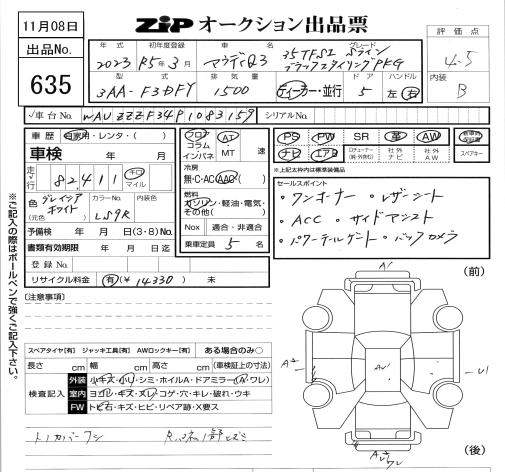 11月08日
出品No.
635
ZIP オークション出品票
評価点
4-5
内装
B
年式 初年度登録 車名 グレード
2023 R5年3月 アウディQ3 35TFSI Sライン
ブラックスタイリングPKG
型式 排気量 ドア ハンドル
3AA-F3DFY 1500 ディーラー・並行 5 左・右
車台No. WAUZZZF34P1083159 シリアルNo.
車歴 自家用・レンタ・( )
車検 年 月
走行 82,411 キロ マイル
色 (元色) グレイシアホワイト カラーNo. LS9R 内装色
予備検 年 月 日(3・8)No.
書類有効期限 年 月 日迄
登録No.
リサイクル料金 有(¥14330) 未
フロア コラム インパネ AT ・ MT 速
冷房
無・C・AC・AAC( )
燃料
ガソリン・軽油・電気・その他( )
Nox 適合・非適合
乗車定員 5 名
PS PW SR 革 AW 新車時保証書
ナビ エアB 社外ナビ 社外AW スペアキー
※上記太枠内は標準装備品
セールスポイント
・ワンオーナー ・レザーシート
・ACC ・サイドアシスト
・パワーテールゲート ・バックカメラ
※ご記入の際はボールペンで強くご記入下さい。
[注意事項]
スペアタイヤ[有] ジャッキ工具[有] AWロックキー[有] ある場合のみ○
長さ cm 幅 cm 高さ cm (車検証上の寸法)
検査記入
外装 小キズ・小U・シミ・ホイルA・ドアミラー(A・ワレ)
室内 ヨゴレ・キズ・スレ・コゲ・穴・キレ・破れ・ウキ
FW トビ石・キズ・ヒビ・リペア跡・X要ス
(前)
A1
A2
U1
(後)